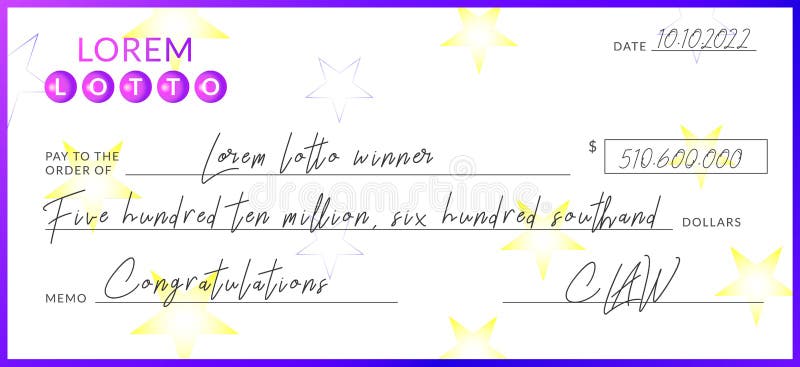 LOREM
LOTTO
DATE 10.10.2022
PAY TO THE
ORDER OF Lorem lotto winner $ 510.600.000
Five hundred ten million, six hundred southand DOLLARS
MEMO Congratulations CLAW
dreamstime